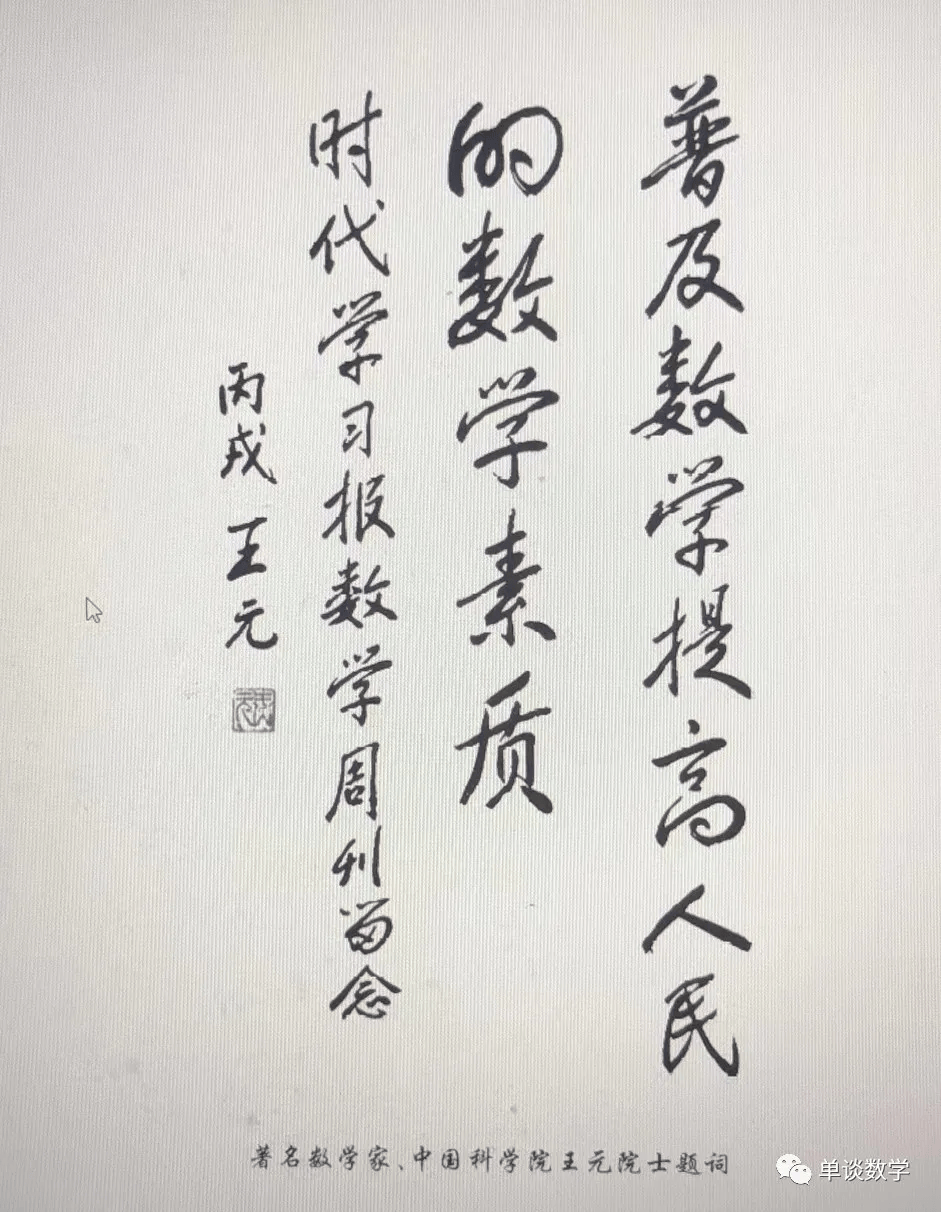 普及数学提高人民
的数学素质
时代学习报数学周刊留念
丙戌 王元
著名数学家、中国科学院王元院士题词
单谈数学